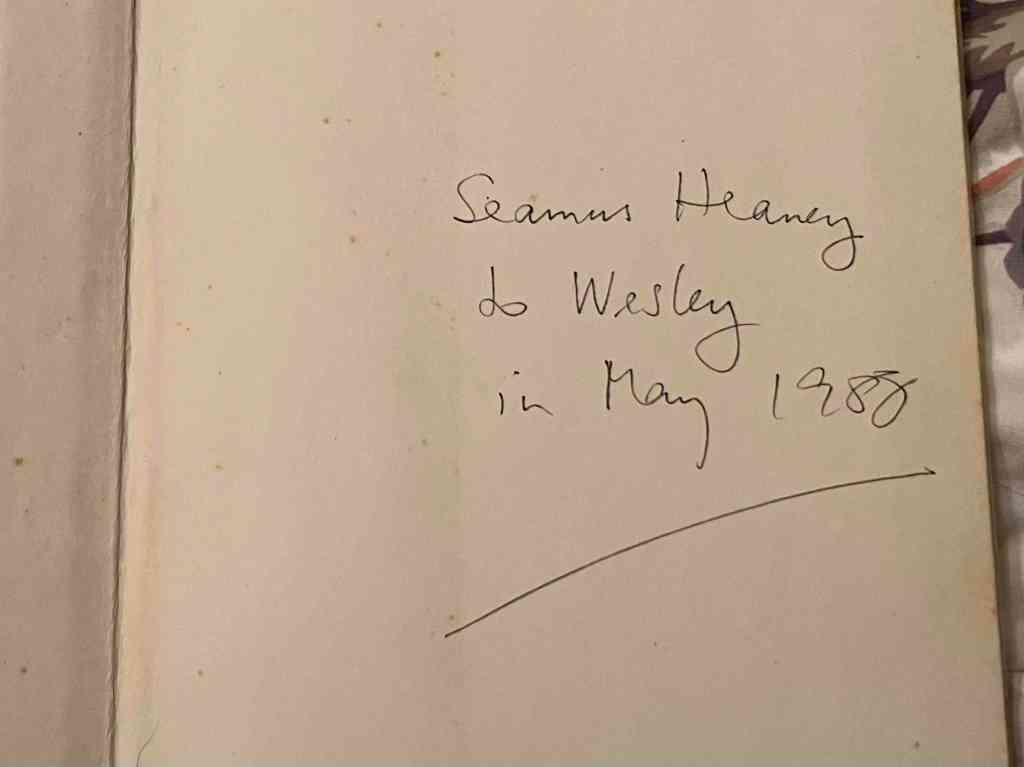 Seamus Heaney
to Wesley
in May 1988